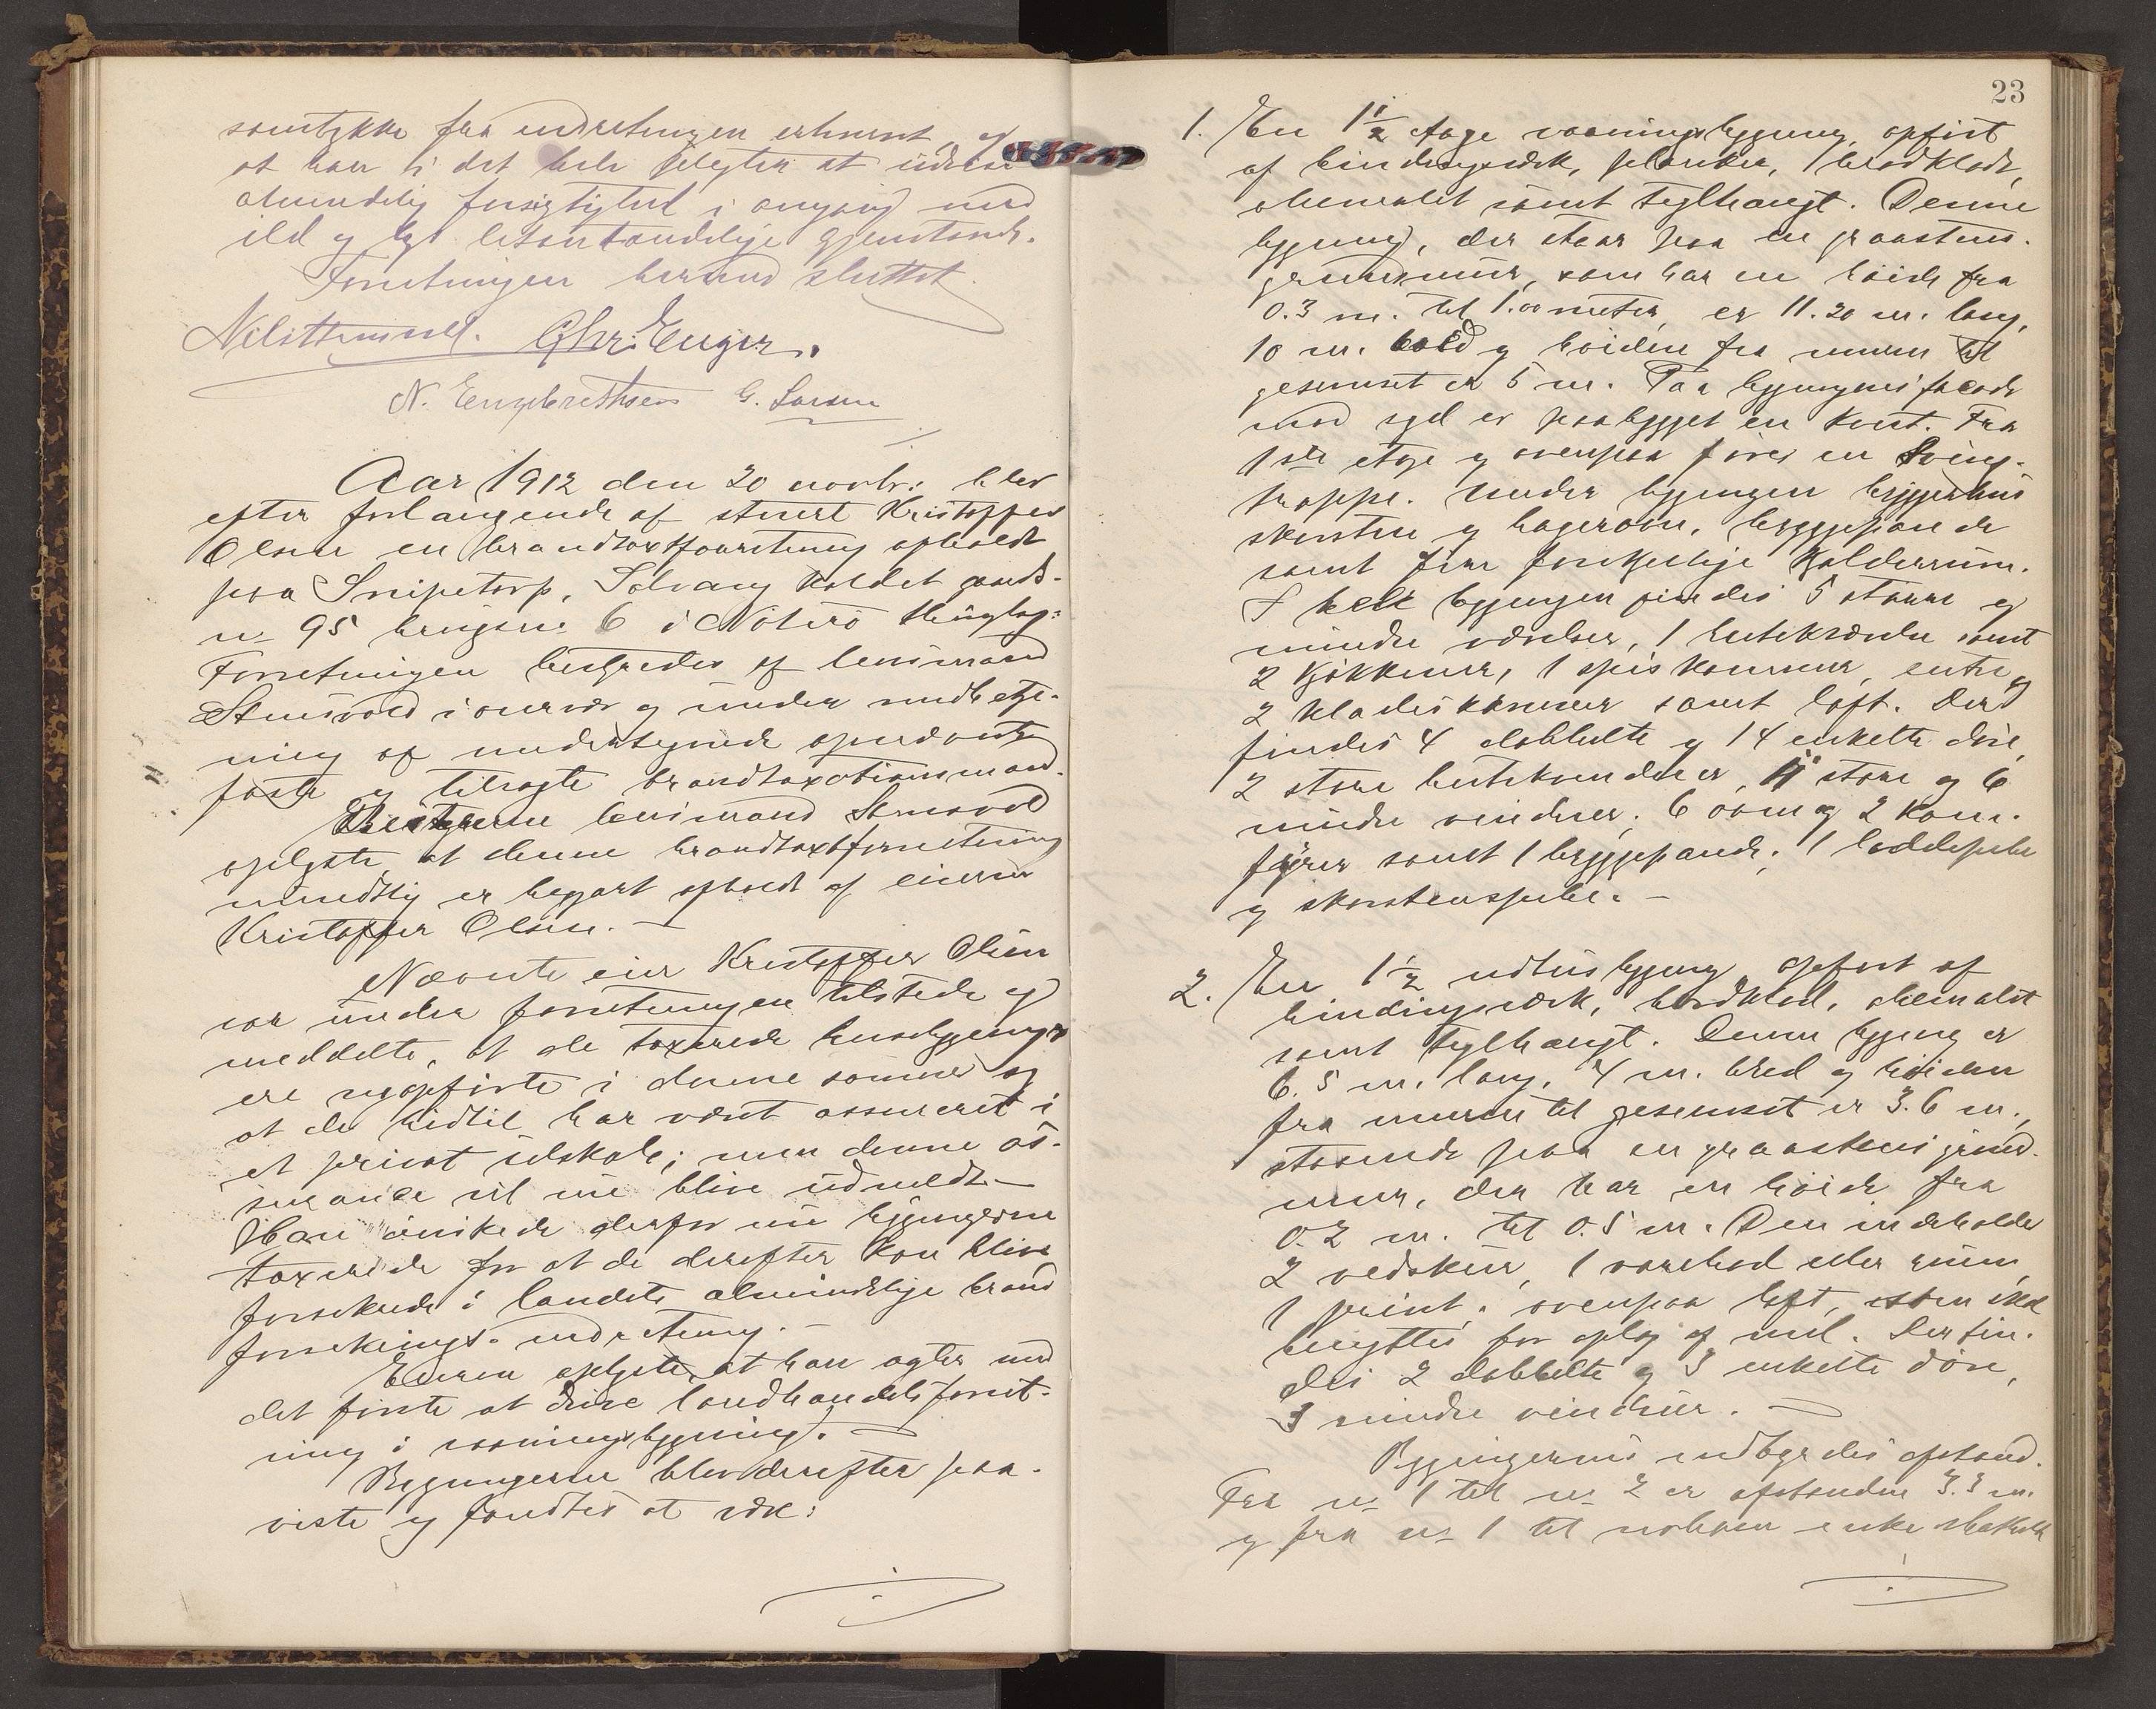 samtykke fra indretningen erhvervet, og
at han i det hele pligter at udvise
almindelig forsigtighed i omgang med
ild og let antændelige gjenstande.
Forretningen hermed sluttet.
Chr: Enger.
N. Engebrethsen G. Larsen
Aar 1912 den 20 novbr: blev
efter forlangende af stuert Kristoffer
Olsen en brandtaxtforretning afholdt
paa Snipetorp, Solvang kaldet gards-
no 95 brugsno 6 i Nøterø thinglag:
Forretningen bestyredes af lensmand
Stensvold i overvær og under medbetje-
ning af undertegnede opnævnte
faste og tilsagte brandtaxationsmænd.
Bestyreren lensmand Stensvold
oplyste at denne brandtaxtforretning
mundtlig er begjært afholdt af eieren
Kristoffer Olsen. —
Nævnte eier Kristoffer Olsen
var under forretningen tilstede og
meddelte, at de taxerede husbygninger
ere nyopførte i denne sommer og
at de hidtil har været assureret i
et privat selskab; men denne as-
surance vil nu blive udmeldt —
Han ønskede derfor nu bygningerne
taxerede for at de derefter kan blive
forsikrede i landets almindelige brand
forsikrings-indretning. —
Eieren oplyste, at han agter med
det første at drive landhandelsforret-
ning i vaaningsbygning. —
Bygningerne blev derefter paa-
viste og fandtes at være:
23
1. En 1 1/2 etage vaaningsbygning, opført
af bindingsverk, planker, bordklædt,
oliemalet samt teglhængt. Denne
bygning, der staar paa en graastens-
grundmur, som har en høide fra
0.3 m. til 1.00 meter, er 11.20 m. lang,
10 m. bred og høiden fra muren til
gesimset er 5 m. Paa bygningens facade
mod syd er paabygget en kvist. Fra
1ste etage og ovenpaa fører en sving-
trappe. Under bygningen bryggerhus
skorsten og bagerovn, bryggepande
samt fire forskjellige kjælderrum.
I hele bygningen findes 5 større og
mindre værelser, 1 butikværelse samt
2 kjøkkener, 1 spiskammer, entre og
2 klædeskammer samt loft. Der
findes 4 dobbelte og 14 enkelte døre,
2 store butikvinduer, 11 store og 6
mindre vinduer; 6 ovne og 2 kom-
fyrer samt 1 bryggepande; 1 loddepibe
og skorstenspibe. —
2. En 1 1/2 udhusbygning opført af
bindingsverk, bordklæd, oliemalet
samt teglhængt. Denne bygning er
6.5 m. lang, 4 m. bred og høiden
fra muren til gesimset er 3.6 m.,
staaende paa en graastens grund-
mur, der har en høide fra
0.2 m. til 0.5 m. Den indeholder
2 vedskur, 1 varebod eller rum,
1 privet; ovenpaa loft, som ikke
benyttes for oplag af mel. Der fin-
des 2 dobbelte og 3 enkelte døre,
3 mindre vinduer. —
Bygningernes indbyrdes afstand.
Fra no 1 til no 2 er afstanden 3.3 m.
og fra no 1 til naboen enke